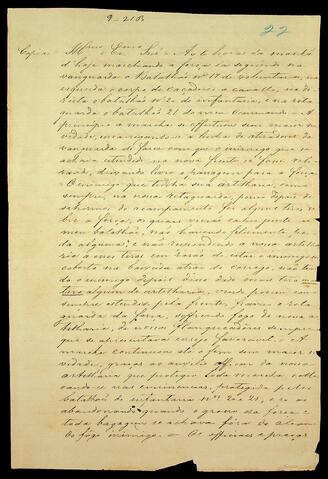 9-218
22
Copia = Illmo. Exmo. Snr. = As to horas da manhã
d'hoje marchando a força ia seguindo na
vanguarda o Batalhão nº 17 de voluntarios, na
esquerda o corpo de caçadores a cavallo, na di-
reita o batalhão nº 20 de infantaria, e na reta-
guarda o batalhão 21 do meu Commando = A
principio a marcha effetuou sem maior no-
vidade, encarregando-se a linha de atiradores da
vanguarda de fazer com que o inimigo que se
achava estendido na nossa frente se fosse reti-
rando, deixando livre a passagem para a força
O inimigo que tinha sua artilharia, como
sempre, na nossa retaguarda, pouco depois de
sahirmos do acampamento fez alguns tiros so-
bre a força, os quaes
meu batalhão, não havendo felizmente, per-
da alguma; e não respondendo a nossa artilha-
ria a esses tiros em razão de estar o inimigo en-
coberto na atraz do corrego, não ten-
do o inimigo depois disso dado mais tiro
tiro algum de artilharia, veio porem
sempre estendido pela frente, flanco e reta-
guarda da força, soffrendo fogo da nossa ar-
tilharia, de nossos flanqueadores sempre
que se apresentava ensejo favoravel = A
marcha continuou até o fim sem maior no-
vidade, graças ao auxilio efficaz da nossa
artilharia que protegeu toda marcha, collo-
cando-se nas eminencias, protegida pelos
batalhões de infantaria nos 20 e 21, e só as
abandonando quando o grosso da força e
toda bagagem se achava fóra do alcan-
ce do fogo inimigo = Os officiaes e praças